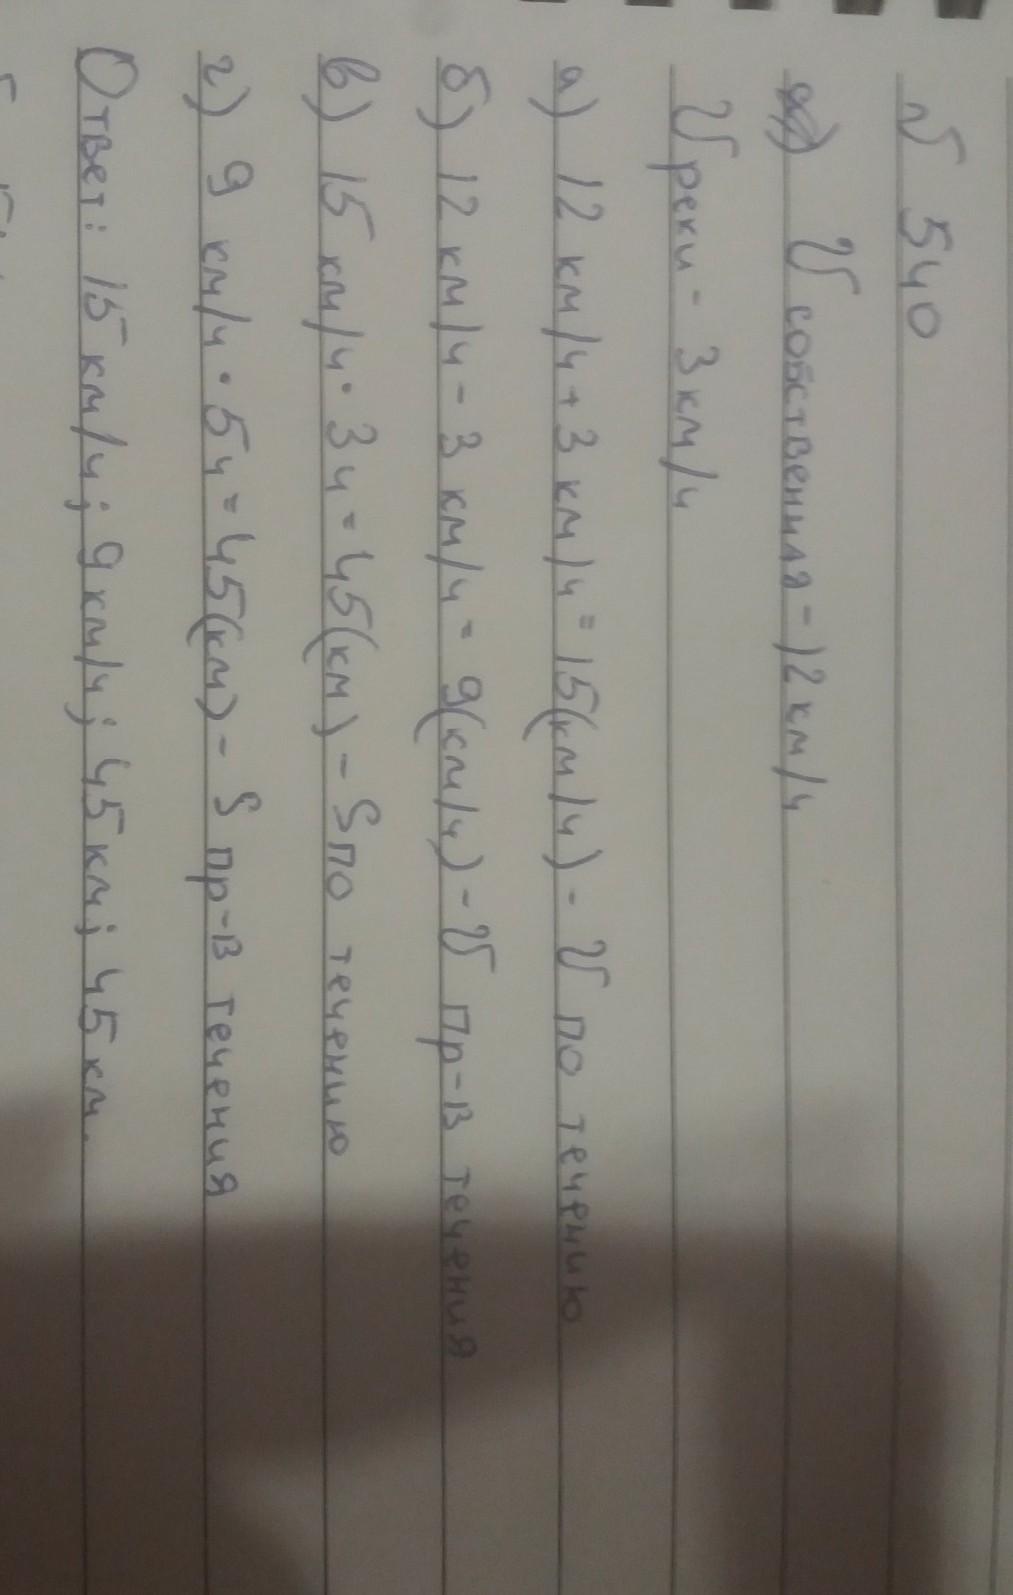 № 540
V собственная - 12 км/ч
V реки - 3 км/ч
а) 12 км/ч + 3 км/ч = 15(км/ч) - V по течению
б) 12 км/ч - 3 км/ч = 9(км/ч) - V пр-в течения
в) 15 км/ч · 3ч = 45(км) - S по течению
г) 9 км/ч · 5ч = 45(км) - S пр-в течения
Ответ: 15 км/ч; 9км/ч; 45км; 45км.